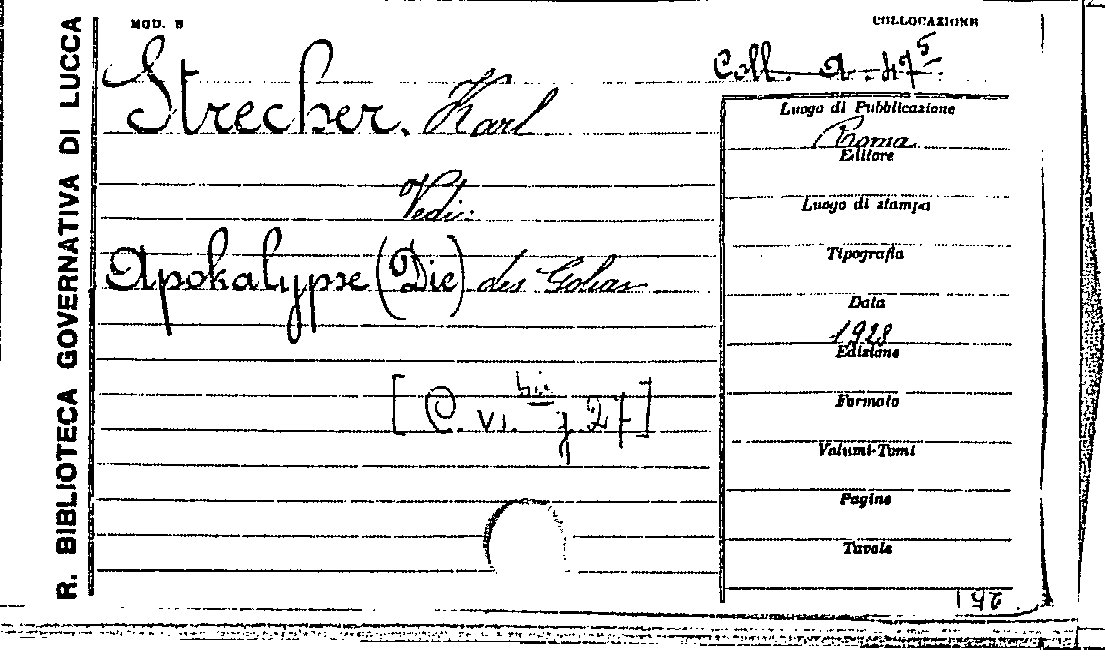 R. BIBLIOTECA GOVERNATIVA DI LUCCA
MOD. B
COLLOCAZIONE
Coll. a. 47⁵
Strecker, Karl
Vedi:
Apokalypse (Die) des Golias
[C. VI. bis z. 27]
Luogo di Pubblicazione
Roma
Editore
Luogo di stampa
Tipografia
Data
1928
Edizione
Formato
Volumi-Tomi
Pagine
Tavole